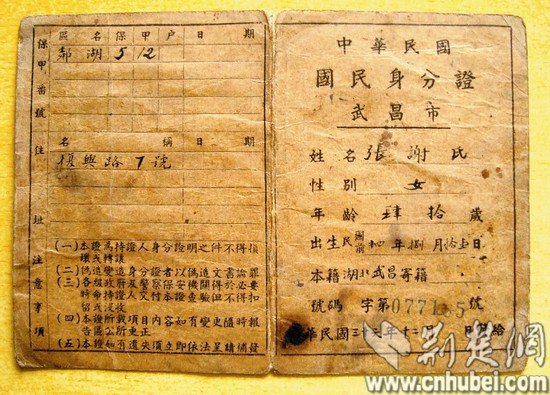 中華民國
國民身分證
武昌市
姓名 張謝氏
性別 女
年齡 肆拾 歲
出生民國前 年捌月拾 日
本籍湖北武昌寄籍
號碼 字第0771 5號
華民國三十三年十二月 日 給
區名保甲戶 日期
鄰湖 5 12
保甲番號
名稱 日期
復興路7號
住址
注意事項
(一)本證為持證人身分證明之件不得損壞或轉讓
(二)偽造變造身分證者以偽造文書論罪
(三)各級政府及警察保安機關查驗得於必要時命持證人交付
(四)本證所載項目內容如有變更
(五)本證如有遺失立即依法呈請補發
荊楚網
www.cnhubei.com